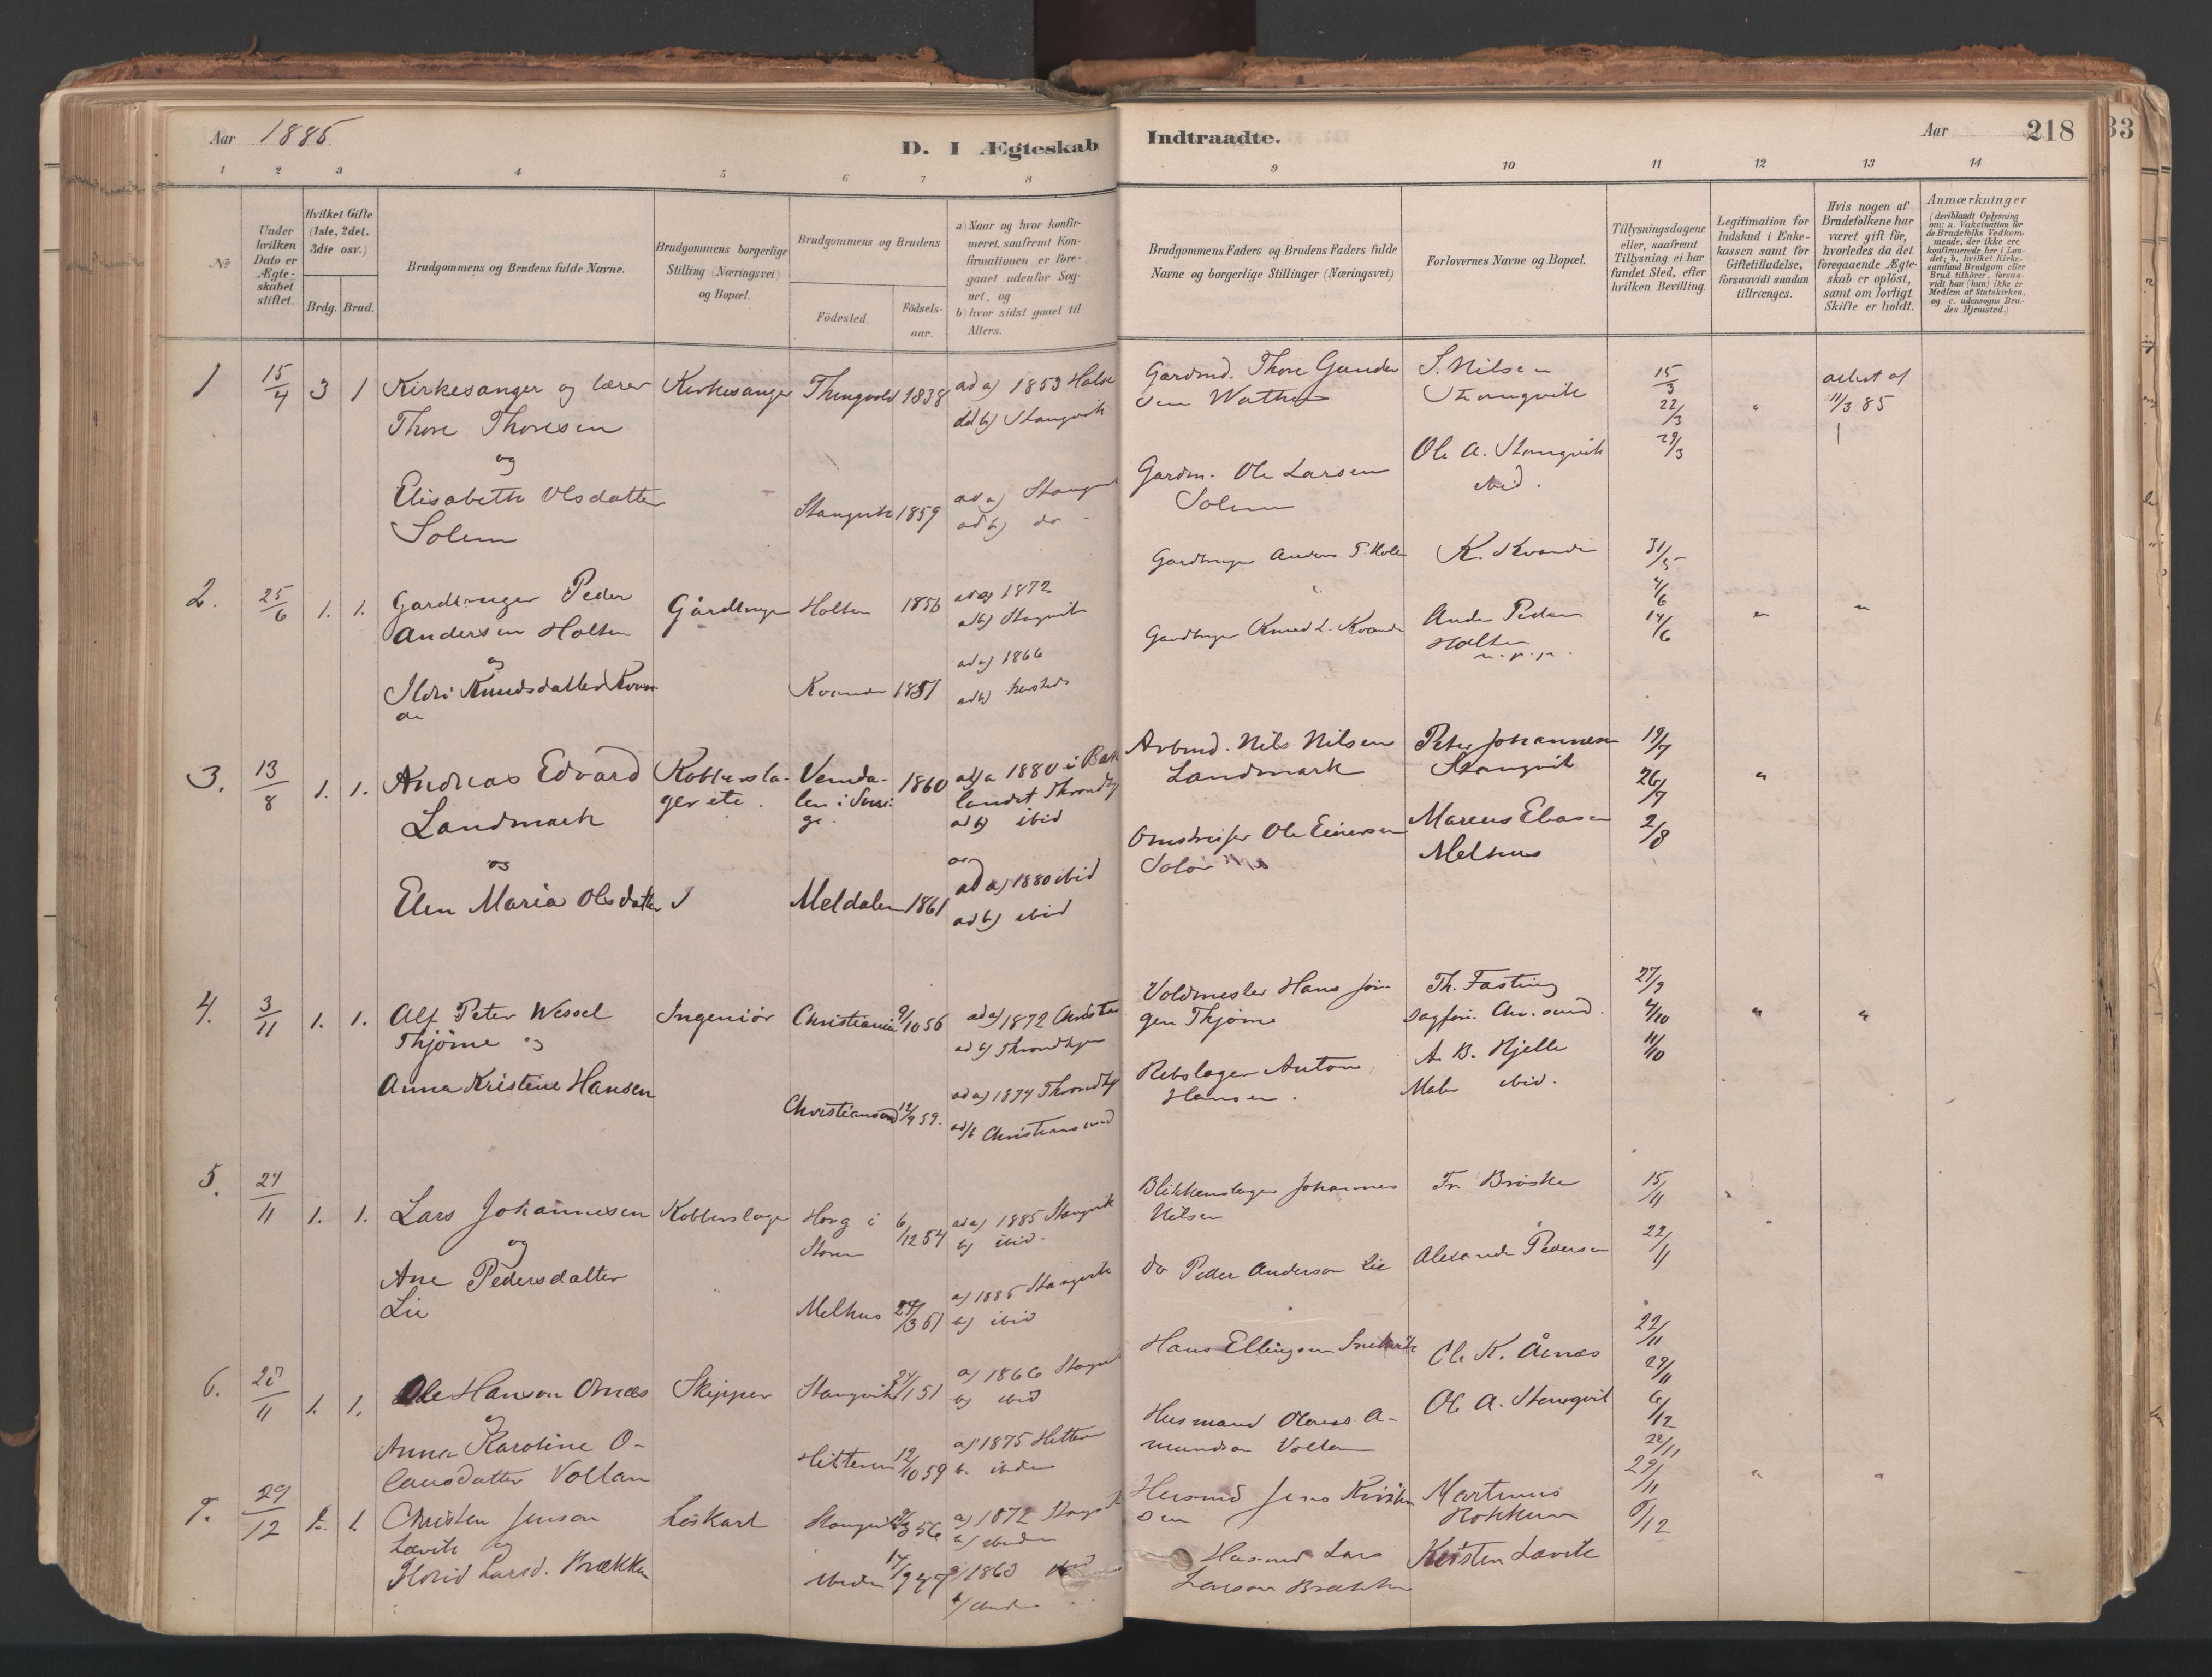 Aar 1885.
D. I Ægteskab
Indtraadte.
Aar 218
33
1 2 3 4 5 6 7 8 9 10 11 12 13 14
No
Under hvilken Dato er Ægteskabet stiftet.
Hvilket Gifte (1ste, 2det, 3die osv.)
Brdg. Brud.
Brudgommens og Brudens fulde Navne.
Brudgommens borgerlige Stilling (Næringsvei) og Bopæl.
Brudgommens og Brudens
Födested.
Födselsaar.
a) Naar og hvor konfirmeret, saafremt Konfirmationen er foregaaet udenfor Sognet, og
b) hvor sidst gaaet til Alters.
Brudgommens Faders og Brudens Faders fulde Navne og borgerlige Stillinger (Næringsvei)
Forlovernes Navne og Bopæl.
Tillysningsdagene eller, saafremt Tillysning ei har fundet Sted, efter hvilken Bevilling.
Legitimation for Indskud i Enkekassen samt for Giftetilladelse, forsaavidt saadan tiltrænges.
Hvis nogen af Brudefolkene har været gift før, hvorledes da det foregaaende Ægteskab er opløst, samt om lovligt Skifte er holdt.
Anmærkninger
(deriblandt Oplysning om: a. Vakcination for de Brudefolks Vedkommende, der ikke ere konfirmerede her i Landet; b. hvilket Kirkesamfund Brudgom eller Brud tilhører, forsaavidt han (hun) ikke er Medlem af Statskirken, og c. udensogns Brudes Hjemsted.)
1 15/4 3 1 Kirkesanger og lærer Kirkesanger Thingvold 1838 ad a) 1853 Halse
Thore Thoresen ad b) Stangvik
og
Elisabeth Olsdatter Stangvik 1859 ad a) Stangvik
Solem ad b) do
Gardmd. Thore Gunder S. Nilsen 15/3
sen Wathen Stangvik 22/3 " 11/3 85
Ole A. Stangvik 29/3
Gardm. Ole Larsen ibid.
Solem
2. 25/6 1. 1. Gardbruger Peder Gårdbruger Holten 1856 ad a) 1872
Andersen Holten ad b) Stangvik
og
Ildri Knudsdatter Kvan Kvande 1851 ad a) 1866
de ad b) hersteds
Gardbruger Anders P. Holten K. Kvande 31/5
4/6
Gardbruger Knud L. Kvande Ander Pedersen 14/6 " "
Holten
m. p. p.
3. 13/8 1. 1. Andreas Edvard Kobbersla- Vemda- 1860 ad a 1880 i Bak
Landmark ger etc. len i Sveri- landet Throndhj
ge. ad b) ibid
og
Elen Maria Olsdatter Meldalen 1861 ad a) 1880 ibid
ad b) ibid
Arbmd. Nils Nilsen Peter Johannesen 19/7
Landmark Stangvik 26/7 "
Ole Einersen Marcus Eliasen 2/8
Melhus
4. 3/11 1. 1. Alf Peter Wessel Ingeniör Christiania 9/10 56 ad a) 1872 Christia
Thjöme og ad b) Throndhjem
Anna Kristine Hansen Christiansund 12/9 59. ad a) 1874 Throndhj
ad b Christiansund
Voldmester Hans Jör- Th. Fasting 27/9
gen Thjöme Sagför. Chr.sund. 4/10 " "
Rebslager Anton A. B. Hjelle 11/10
Hansen. Maler ibid.
5. 24/11 1. 1. Lars Johannesen Kobberslager Horg i 6/12 54 ad a) 1885 Stangvik
og Støren b) ibid.
Ane Pedersdatter
Lie Melhus 61 a) 1885 Stangvik
b) ibid
Blikkenslager Johannes Fr. Bröske 15/11
Nilsen
do Peder Anderson Lie Alexander Pedersen 22/11
6. 28/11 1. 1. Ole Hanson Ornæs Skipper Stangvik 51 a) 1866 Stangvik
og b) ibid
Anna Karoline O- Hitteren 12/10 59 a) 1875 Hitteren
lausdatter Vollan b. ibidem
Hans Ellingsen Ole K. Årnæs 22/11
29/11
Husmand Olaus A- Ole A. Stangvik 6/12
mundsen Vollan
7. 29/12 1. Christen Jenson Löskarl Stangvik 56 a) 1872 Stangvik
Lævik og b) ibidem
Larsd. Brækken ibidem 14/9 47 a) 1863 ibid
b/ ibidem
Husmd Jens Kristen Martinus 22/11
sen Rokkum 29/11 " "
6/12
Husmd Lars Kristen Lævik
Larson Brækken